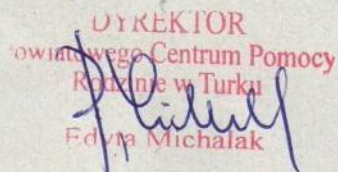 DYREKTOR
owiatowego Centrum Pomocy
Rodzinie w Turku
Edyta Michalak